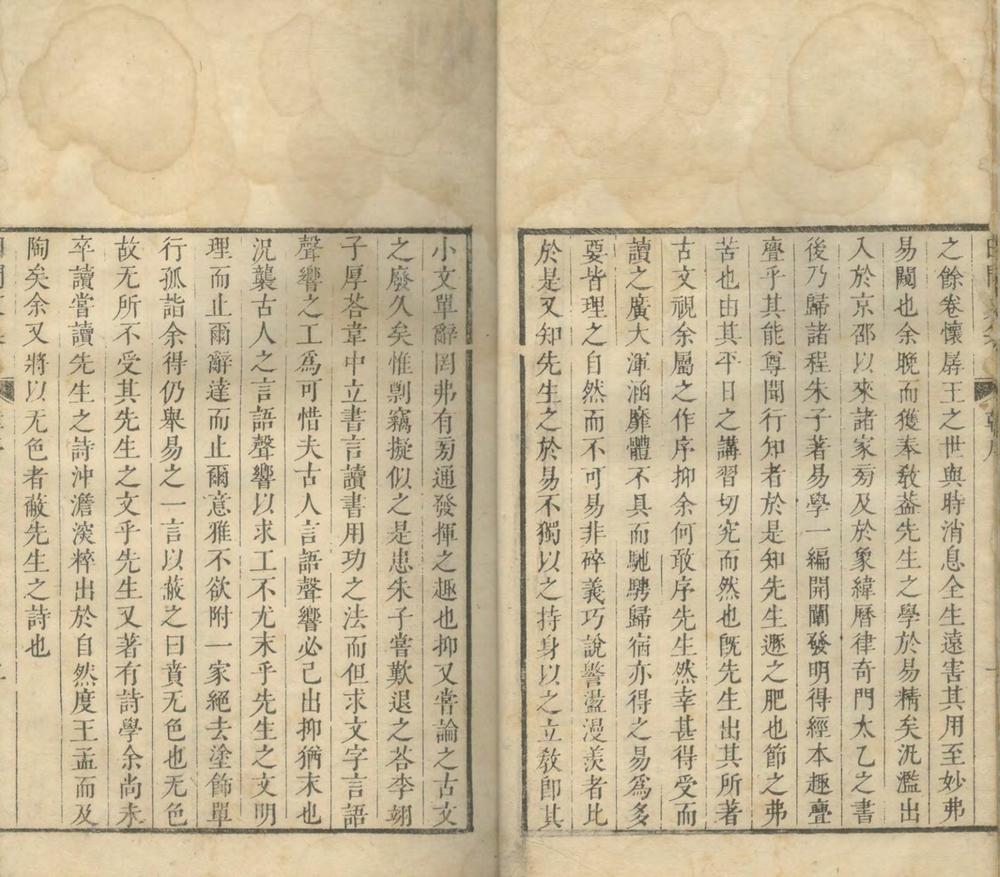 之餘卷懷孱王之世與時消息全生遠害其用至妙弗
易闚也余晚而獲奉敎葢先生之學於易精矣汎濫出
入於京邵以來諸家旁及於象緯曆律奇門太乙之書
後乃歸諸程朱子著易學一編開闡發明得經本趣亹
亹乎其能尊聞行知者於是知先生遯之肥也節之弗
苦也由其平日之講習切究而然也旣先生出其所著
古文視余屬之作序抑余何敢序先生然幸甚得受而
讀之廣大渾涵靡體不具而馳騁歸宿亦得之易爲多
要皆理之自然而不可易非碎義巧說謷䜚漫羨者比
於是又知先生之於易不獨以之持身以之立敎卽其
小文單辭罔弗有旁通發揮之趣也抑又嘗論之古文
之廢久矣惟剽竊擬似之是患朱子嘗歎退之荅李翊
子厚荅韋中立書言讀書用功之法而但求文字言語
聲響之工爲可惜夫古人言語聲響必己出抑猶末也
況襲古人之言語聲響以求工不尤末乎先生之文明
理而止爾辭達而止爾意雅不欲附一家絕去塗飾單
行孤詣余得仍舉易之一言以蔽之曰賁无色也无色
故无所不受其先生之文乎先生又著有詩學余尚未
卒讀嘗讀先生之詩沖澹淡粹出於自然度王孟而及
陶矣余又將以无色者蔽先生之詩也